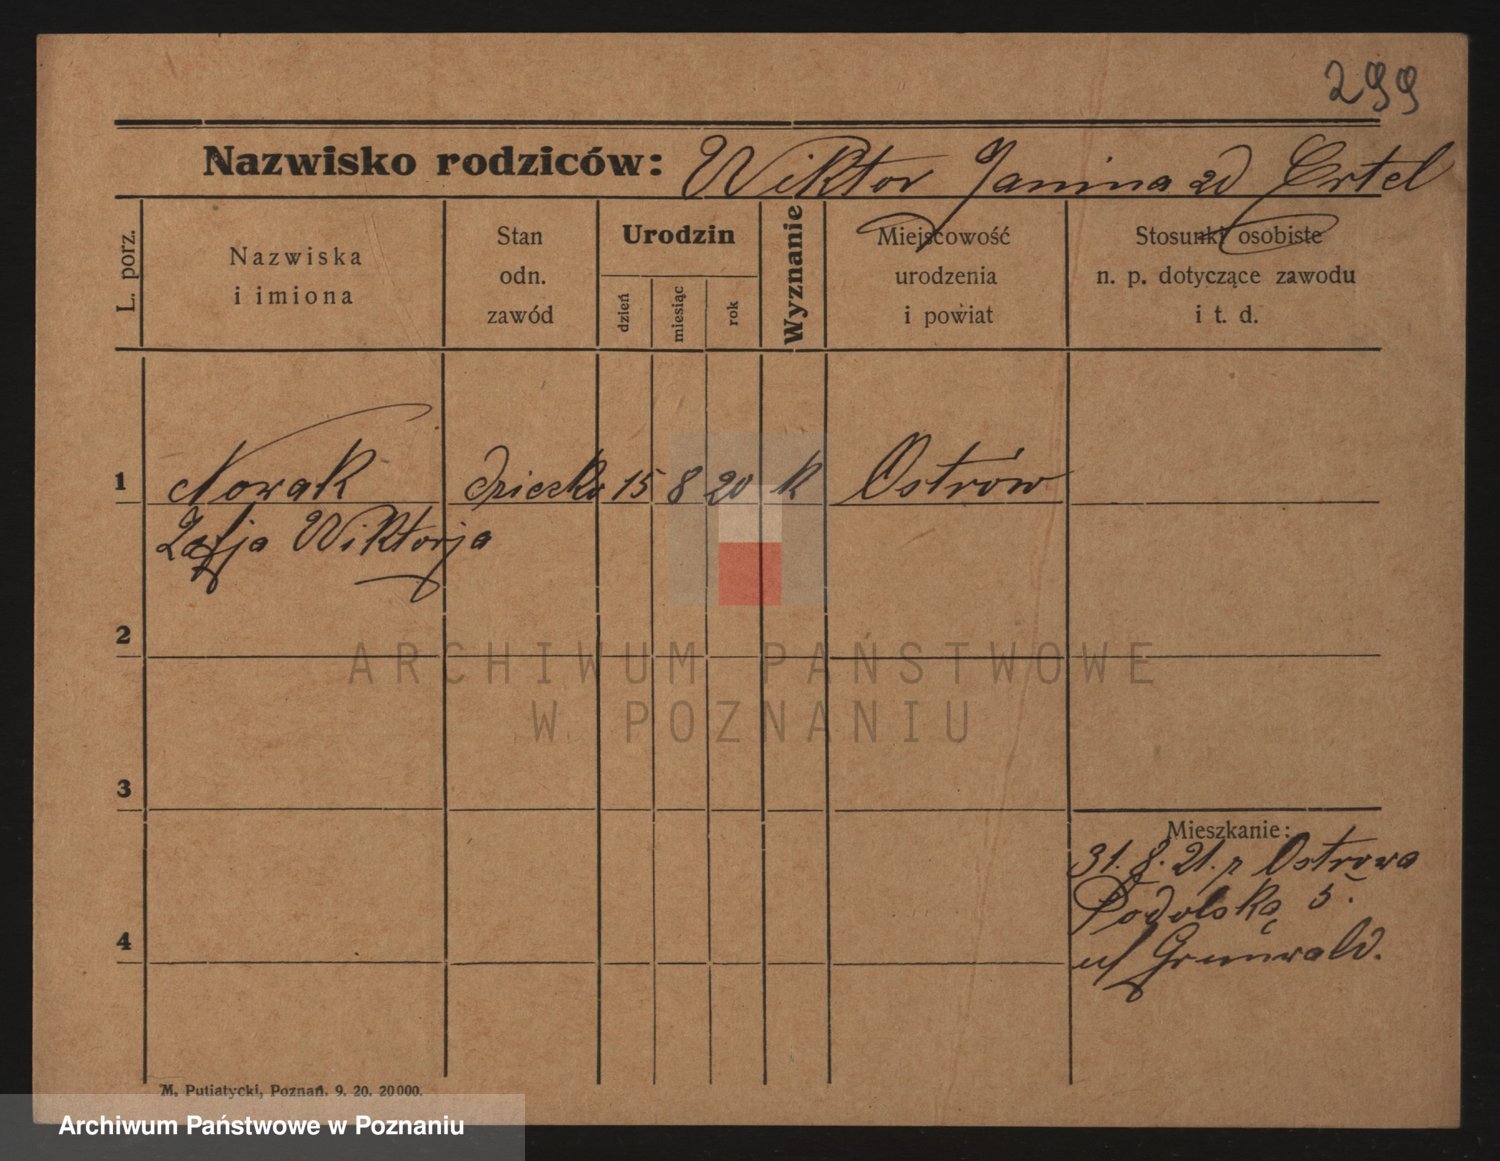 299
Nazwisko rodziców: Wiktor Janina zd Ertel
L. porz.
Nazwiska
i imiona
Stan
odn.
zawód
Urodzin
dzień
miesiąc
rok
Wyznanie
Miejscowość
urodzenia
i powiat
Stosunki osobiste
n. p. dotyczące zawodu
i t. d.
1 Nowak dziecko 15 8 20 k Ostrów
Zofja Wiktorja
2
ARCHIWUM PAŃSTWOWE
W POZNANIU
3
Mieszkanie:
31. 8. 21. z Ostrowa
Podolską 5.
4
u/ Grunwald.
M. Putiatycki, Poznań. 9. 20. 20000.
Archiwum Państwowe w Poznaniu